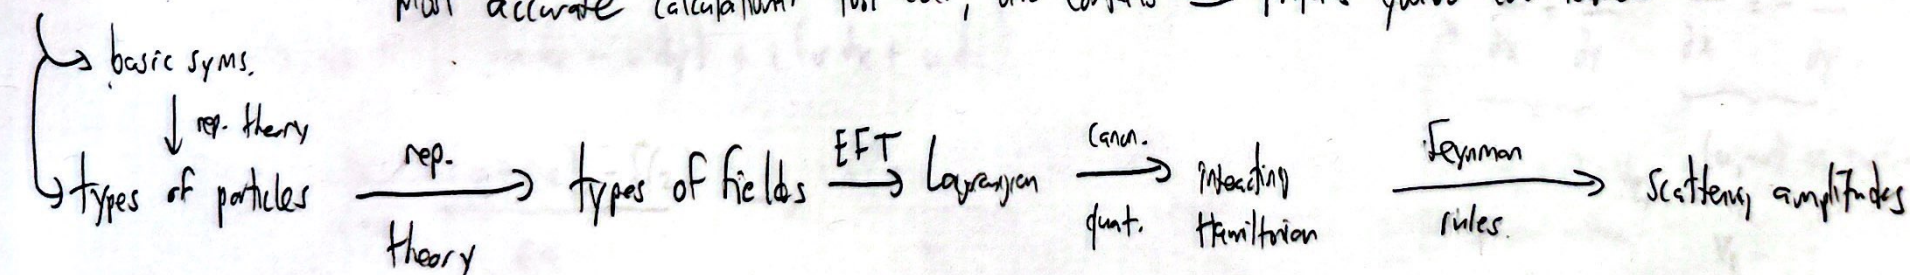 most accurate calculations
basic syms.
rep. theory
types of particles
rep.
theory
types of fields
EFT
Lagrangian
canon.
quant.
interacting
Hamiltonian
Feynman
rules.
scattering amplitudes